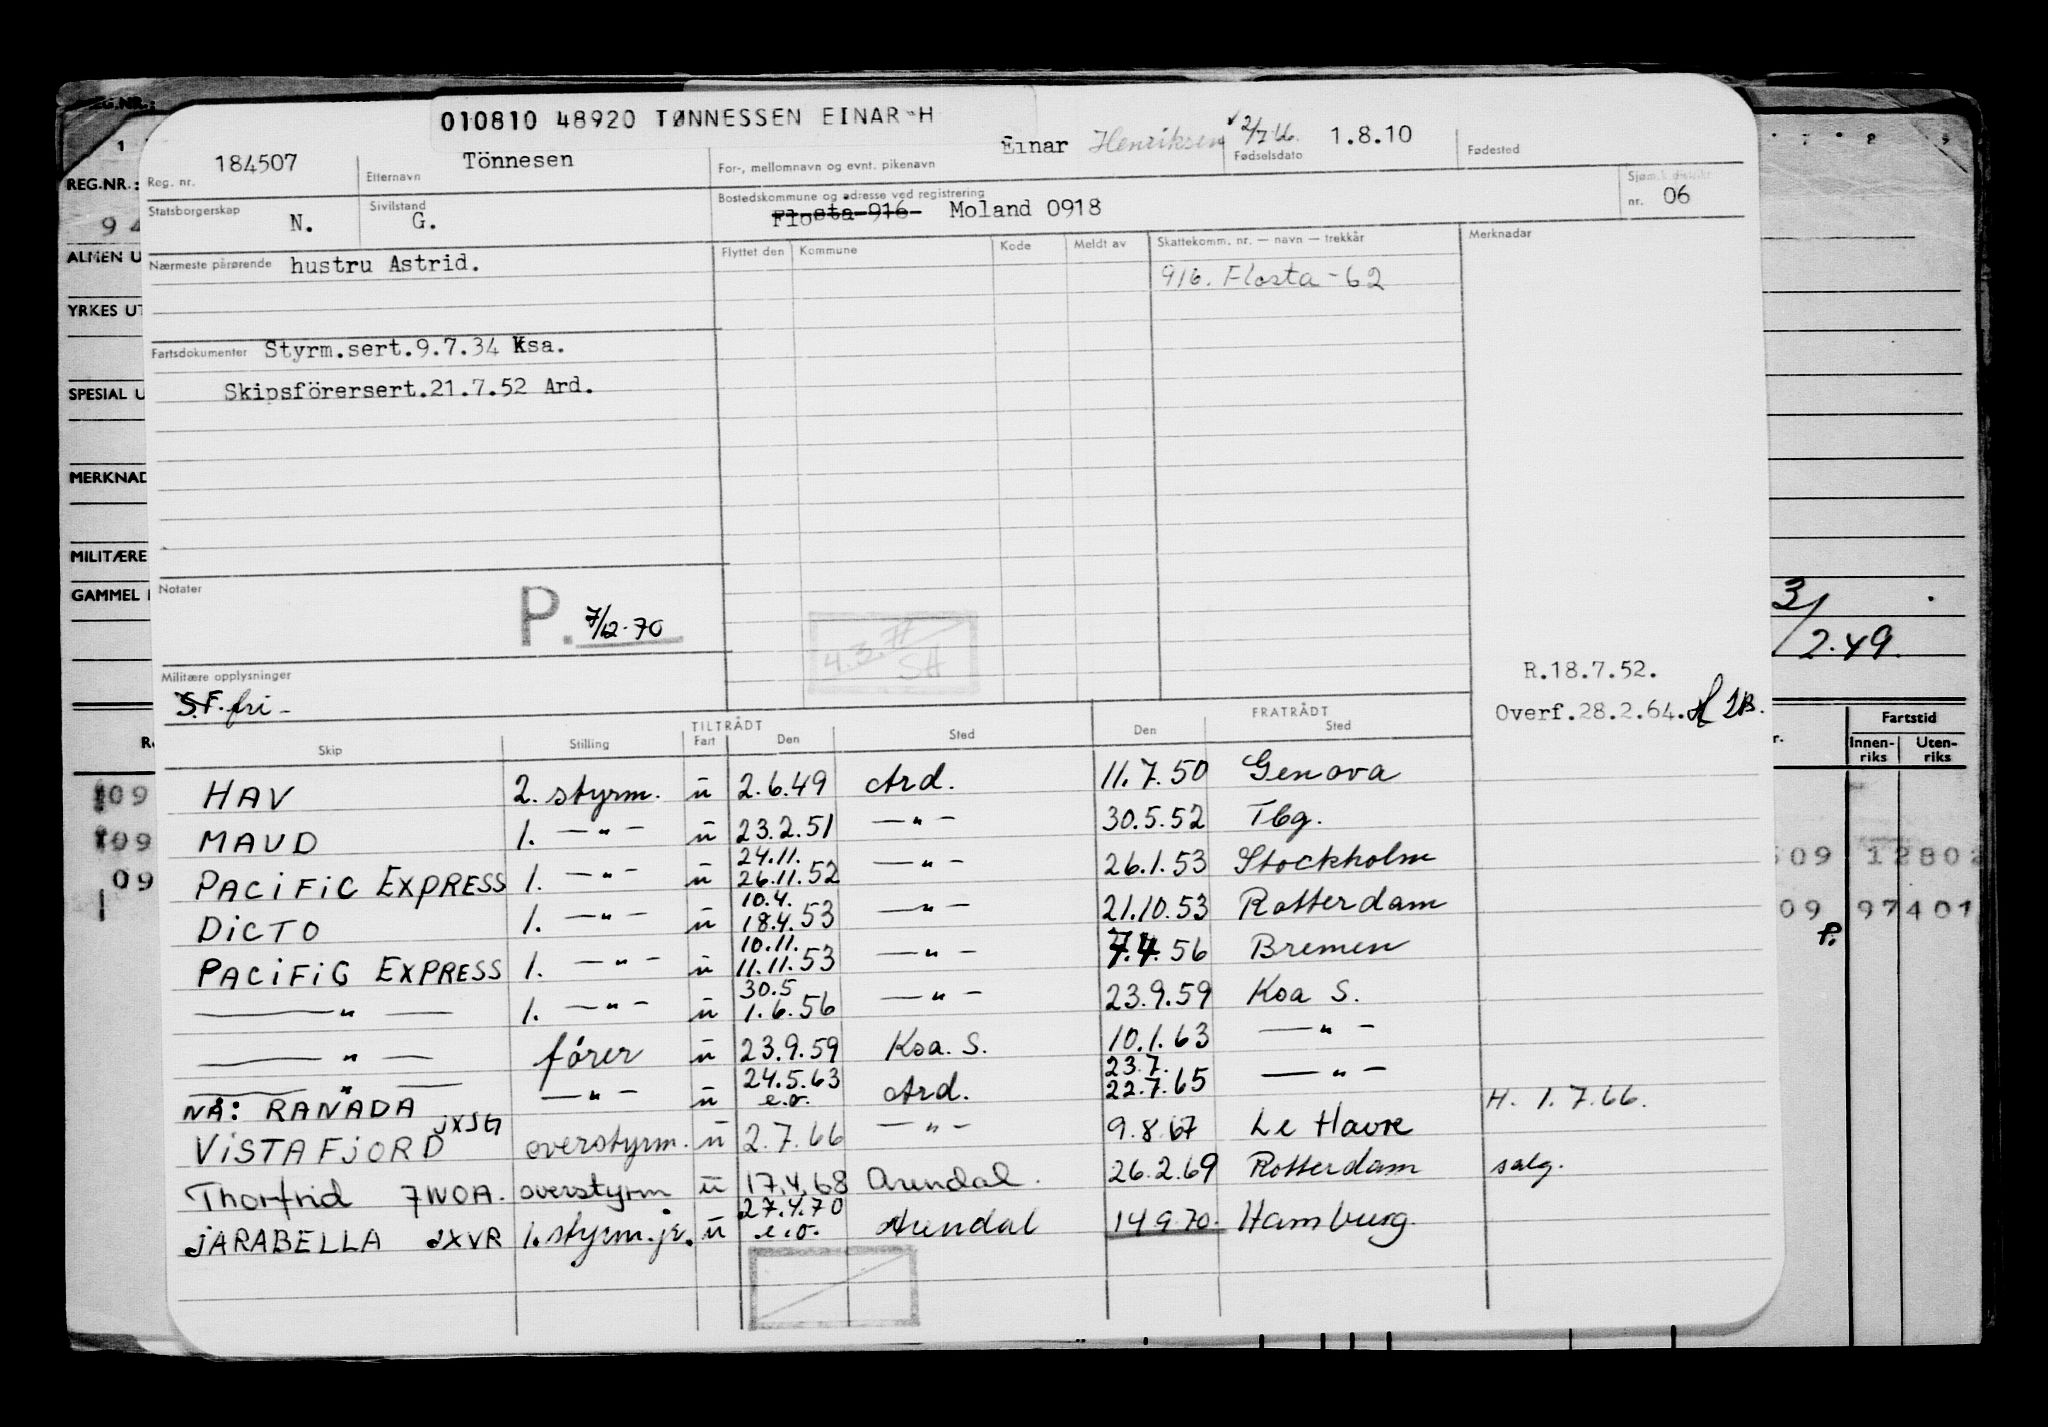 010810 48920 TØNNESSEN EINAR H
REG.NR.:
Reg. nr. 184507 Etternavn Tönnesen For-, mellomnavn og evnt. pikenavn Einar Henriksen 2/7 66. Fødselsdato 1.8.10 Fødested
Statsborgerskap N. Sivilstand G. Bostedskommune og adresse ved registrering Flosta 916 Moland 0918 Sjøm.k.distrikt nr. 06
Nærmeste pårørende hustru Astrid. Flyttet den Kommune Kode Meldt av Skattekomm. nr. — navn — trekkår Merknadar
916. Flosta - 62
Fartsdokumenter Styrm.sert.9.7.34 Ksa.
Skipsförersert.21.7.52 Ard.
Notater P. 7/12-70
4.3.71 SH
Militære opplysninger
S.F. fri -
R.18.7.52.
Overf.28.2.64.
TILTRÅDT FRATRÅDT
Skip Stilling Fart Den Sted Den Sted
HAV 2. styrm. u 2.6.49 Ard. 11.7.50 Genova
MAUD 1. — " — u 23.2.51 — " — 30.5.52 Tbg.
PACIFIC EXPRESS 1. — " — u 24.11. 26.11.52 — " — 26.1.53 Stockholm
DICTO 1. — " — u 10.4. 18.4.53 — " — 21.10.53 Rotterdam
PACIFIC EXPRESS 1. — " — u 10.11. 11.11.53 — " — 7.4.56 Bremen
— " — 1. — " — u 30.5 1.6.56 — " — 23.9.59 Ksa S.
— " — fører u 23.9.59 Ksa. S. 10.1.63 — " —
— " — NÅ: RANADA — " — u 24.5.63 e.o. Ard. 23.7. 22.7.65 — " —
VISTAFJORD JXSG overstyrm. u 2.7.66 — " — 9.8.67 Le Havre H. 1.7.66.
Thorfrid 7WOA. overstyrm u 17.4.68 Arendal. 26.2.69 Rotterdam salg.
JARABELLA JXVR 1. styrm. jr. u 27.4.70 e.o. Arendal 14.9.70. Hamburg.
REG.NR.:
94
ALMEN U
YRKES UT
SPESIAL U
MERKNAD
MILITÆRE
GAMMEL
09
09
09
3/
2.49.
Fartstid
Innen-riks Uten-riks
509 12802
09 97401
P.